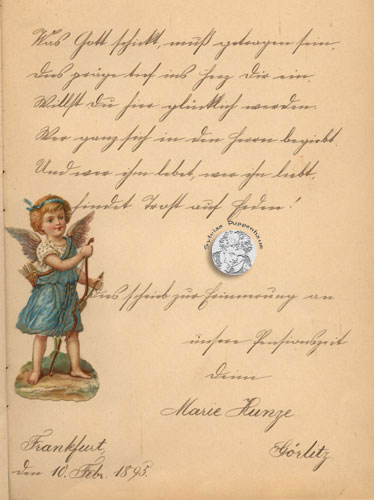 Was Gott schickt, muß getragen sein,
Dies präge tief ins Herz Dir ein.
Willst Du hier glücklich werden.
Wer ganz sich in den Herrn begiebt.
Und wer ihm lebet, wer ihn liebt,
findet Trost auf Erden!
Sylvias Puppenhaus
Dies schrieb zur Erinnerung an
unsere Pensionszeit
Deine
Marie Kunze
Frankfurt,
Görlitz.
den 10. Febr. 1895.